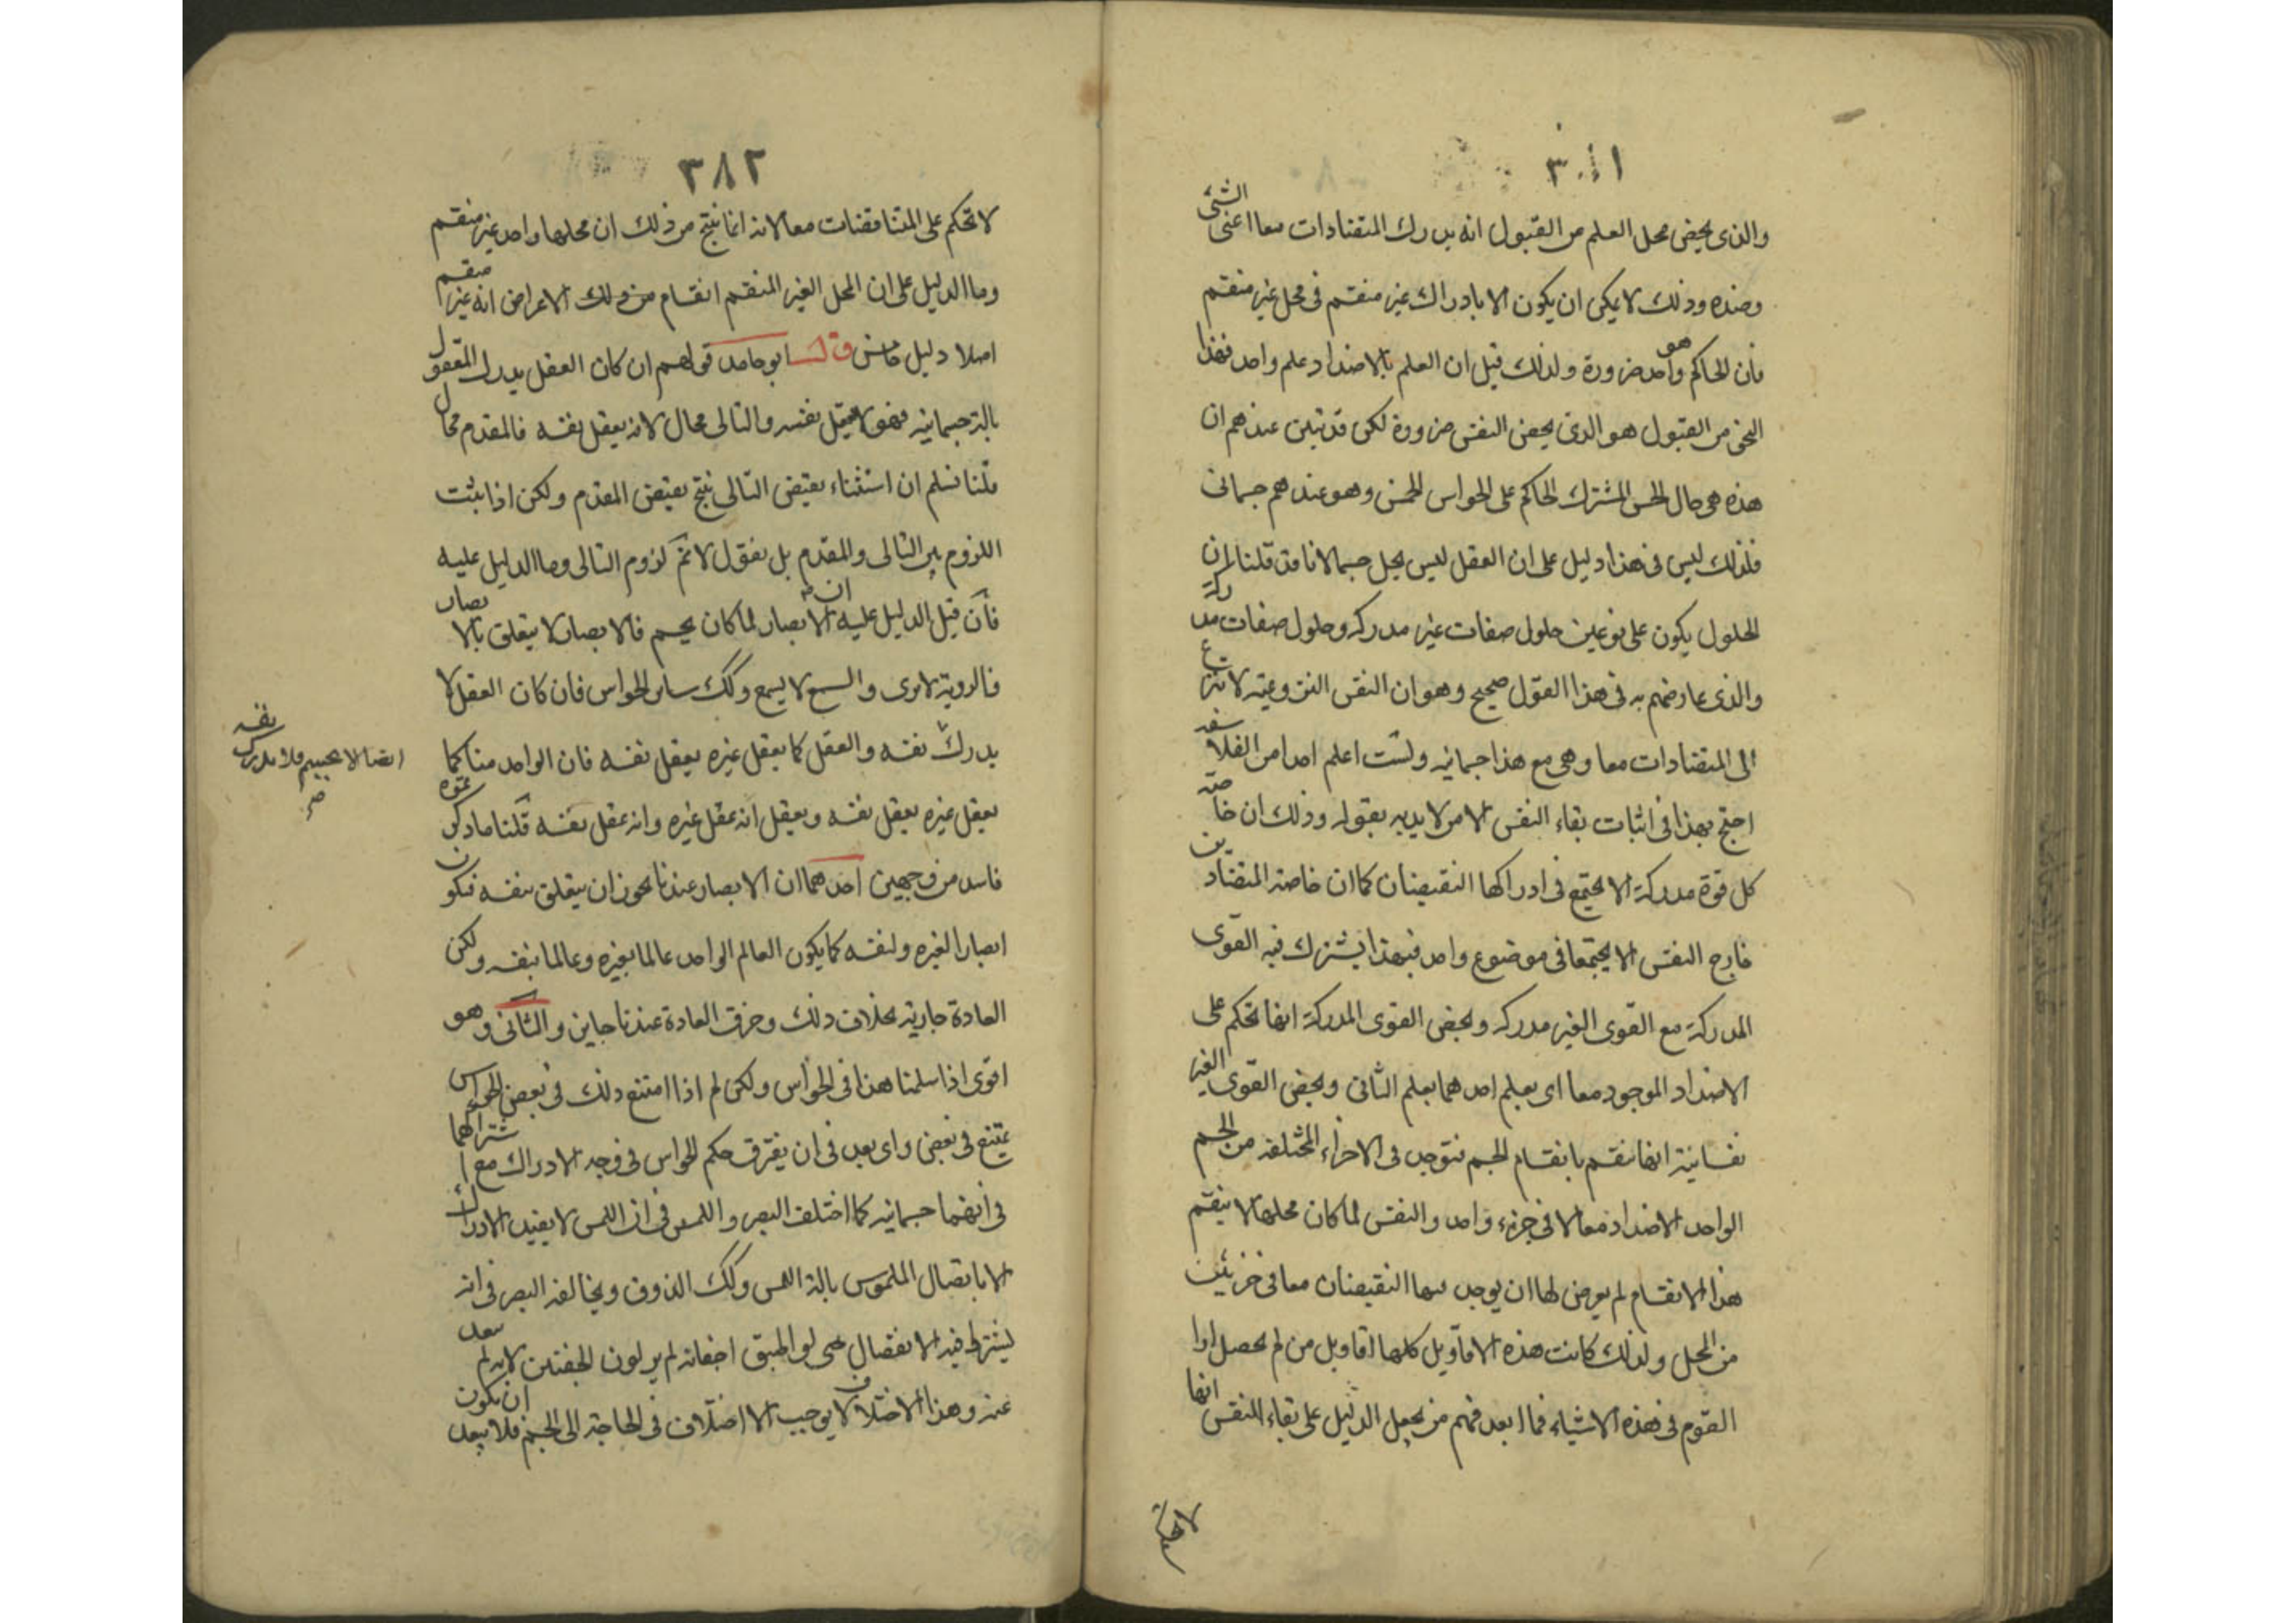 ٣٨١
والذى يخص محل العلم من القبول انه يدرك المتضادات معا اعنى الشئ
وضده وذلك لا يمكن ان يكون الا بادراك غير منقسم فى محل غير منقسم
فان الحاكم هو واحد ضرورة ولذلك قيل ان العلم بالاضداد علم واحد فهذا
النحو من القبول هو الذى يخص النفس ضرورة لكن قد تبين عندهم ان
هذه هى حال الحس المشترك الحاكم على الحواس الخمس وهو عندهم جسمانى
فلذلك ليس فى هذا دليل على ان العقل ليس يحل جسما لانا قد قلنا ان
الحلول يكون على نوعين حلول صفات غير مدركة وحلول صفات مدركة
والذى عارضهم به فى هذا القول صحيح وهو ان النفس النزوعية لا تنزع
الى المتضادات معا وهى مع هذا جسمانية ولست اعلم احدا من الفلاسفة
احتج بهذا فى اثبات بقاء النفس الا من لا يؤبه بقوله وذلك ان خاصة
كل قوة مدركة الا يجتمع فى ادراكها النقيضان كما ان خاصة المتضادين
خارج النفس الا يجتمعا فى موضوع واحد فبهذا يشترك فيه القوى
المدركة مع القوى الغير مدركة ويخص القوى المدركة انها تحكم على
الاضداد الموجودة معا اى يعلم احدهما بعلم الثانى ويخص القوى الغير
نفسانية انها تنقسم بانقسام الجسم فتوجد فى الاجزاء المختلفة من الجسم
الواحد الاضداد معا لا فى جزء واحد والنفس لما كان محلها لا ينقسم
هذا الانقسام لم يعرض لها ان يوجد فيها النقيضان معا فى جزئين
من المحل ولذلك كانت هذه الاقاويل كلها اقاويل من لم يحصل ارا
القوم فى هذه الاشياء فما ابعد فهم من يجعل الدليل على بقاء النفس انها
٣٨٢
لا تحكم على المتناقضات معا لانه انما ينتج من ذلك ان محلها واحد غير منقسم
وما الدليل على ان المحل الغير المنقسم انقسام من ذلك الاعراض انه غير منقسم
اصلا دليل خامس قال ابو حامد قولهم ان كان العقل يدرك المعقول
بالة جسمانية فهو لا يعقل نفسه والتالى محال لانه يعقل نفسه فالمقدم محال
قلنا نسلم ان استثناء نقيض التالى ينتج نقيض المقدم ولكن اذا ثبت
اللزوم بين التالى والمقدم بل نقول لا نم لزوم التالى وما الدليل عليه
فان قيل الدليل عليه ان الابصار لما كان بجسم فالابصار لا يتعلق بالابصار
فالروية لا ترى والسمع لا يسمع وكك ساير الحواس فان كان العقل لا
يدرك نفسه والعقل كما يعقل غيره يعقل نفسه فان الواحد منا كما
ايضا لا بجسم فلا يدرك نفسه
صح
يعقل غيره يعقل نفسه ويعقل انه عقل غيره وانه عقل نفسه قلنا ما ذكرتموه
فاسد من وجهين احدهما ان الابصار عندنا يجوز ان يتعلق بنفسه فيكون
ابصارا لغيره ولنفسه كما يكون العالم الواحد عالما بغيره وعالما بنفسه ولكن
العادة جارية بخلاف ذلك وخرق العادة عندنا جايز والثانى وهو
اقوى اذا سلمنا هذا فى الحواس ولكن لم اذا امتنع ذلك فى بعض الحواس
يمتنع فى بعض واى بعد فى ان يفترق حكم الحواس فى وجه الادراك مع اشتراكهما
فى انهما جسمانية كما اختلف البصر واللمس فى ان اللمس لا يفيد الادراك
الا باتصال الملموس بالة اللمس وكك الذوق ويخالفه البصر فى انه
يشترط فيه الانفصال حتى لو اطبق اجفانه لم ير لون الجفنين لانه لم يبعد
عنه وهذا الاختلاف لا يوجب الاختلاف فى الحاجة الى الجسم فلا يبعد ان يكون